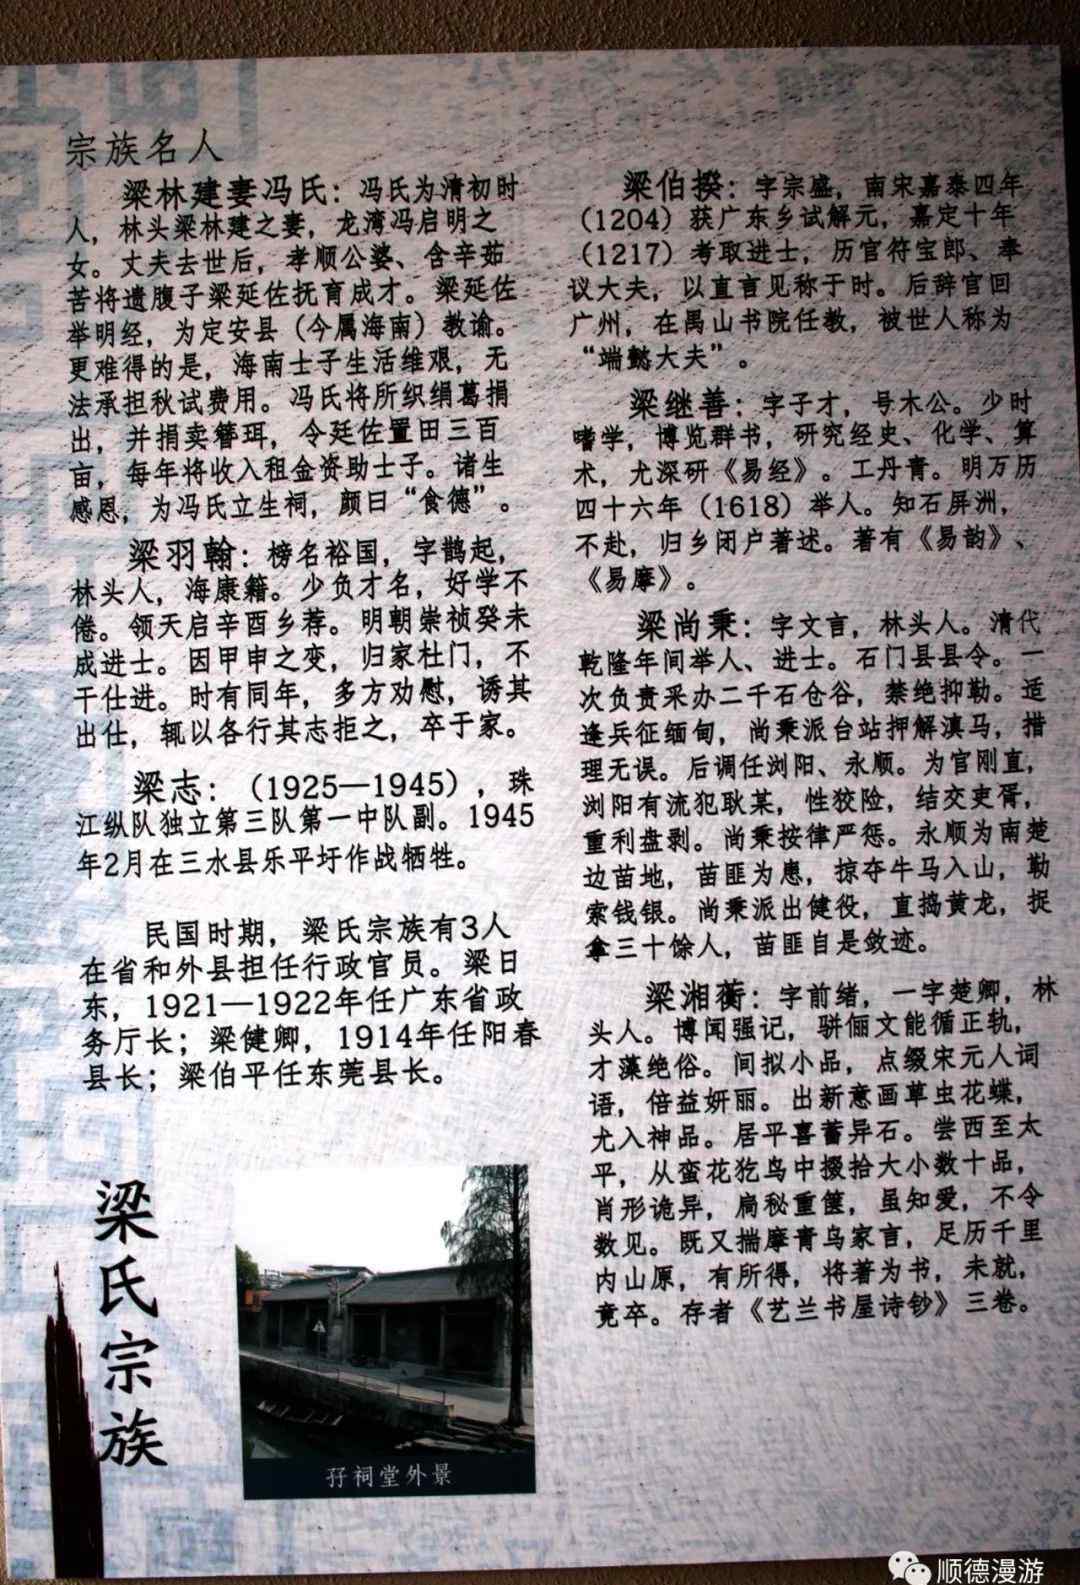 宗族名人
梁林建妻冯氏：冯氏为清初时
人，林头梁林建之妻，龙湾冯启明之
女。丈夫去世后，孝顺公婆、含辛茹
苦将遗腹子梁延佐抚育成才。梁延佐
举明经，为定安县（今属海南）教谕。
更难得的是，海南士子生活维艰，无
法承担秋试费用。冯氏将所织绢葛捐
出，并捐卖簪珥，令廷佐置田三百
亩，每年将收入租金资助士子。诸生
感恩，为冯氏立生祠，颜曰“食德”。
梁羽翰：榜名裕国，字鹊起，
林头人，海康籍。少负才名，好学不
倦。领天启辛酉乡荐。明朝崇祯癸未
成进士。因甲申之变，归家杜门，不
干仕进。时有同年，多方劝慰，诱其
出仕，辄以各行其志拒之，卒于家。
梁志：（1925—1945），珠
江纵队独立第三队第一中队副。1945
年2月在三水县乐平圩作战牺牲。
民国时期，梁氏宗族有3人
在省和外县担任行政官员。梁日
东，1921—1922年任广东省政
务厅长；梁健卿，1914年任阳春
县长；梁伯平任东莞县长。
梁氏宗族
孖祠堂外景
梁伯揆：字宗盛，南宋嘉泰四年
（1204）获广东乡试解元，嘉定十年
（1217）考取进士，历官符宝郎、奉
议大夫，以直言见称于时。后辞官回
广州，在禺山书院任教，被世人称为
“端懿大夫”。
梁继善：字子才，号木公。少时
嗜学，博览群书，研究经史、化学、算
术，尤深研《易经》。工丹青。明万历
四十六年（1618）举人。知石屏洲，
不赴，归乡闭户著述。著有《易韵》、
《易摩》。
梁尚秉：字文言，林头人。清代
乾隆年间举人、进士。石门县县令。一
次负责采办二千石仓谷，禁绝抑勒。适
逢兵征缅甸，尚秉派台站押解滇马，措
理无误。后调任浏阳、永顺。为官刚直，
浏阳有流犯耿某，性狡险，结交吏胥，
重利盘剥。尚秉按律严惩。永顺为南楚
边苗地，苗匪为患，掠夺牛马入山，勒
索钱银。尚秉派出健役，直捣黄龙，捉
拿三十馀人，苗匪自是敛迹。
梁湘蘅：字前绪，一字楚卿，林
头人。博闻强记，骈俪文能循正轨，
才藻绝俗。间拟小品，点缀宋元人词
语，倍益妍丽。出新意画草虫花蝶，
尤入神品。居平喜蓄异石。尝西至太
平，从蛮花犵鸟中掇拾大小数十品，
肖形诡异，扃秘重箧，虽知爱，不令
数见。既又揣摩青乌家言，足历千里
内山原，有所得，将著为书，未就，
竟卒。存者《艺兰书屋诗钞》三卷。
顺德漫游